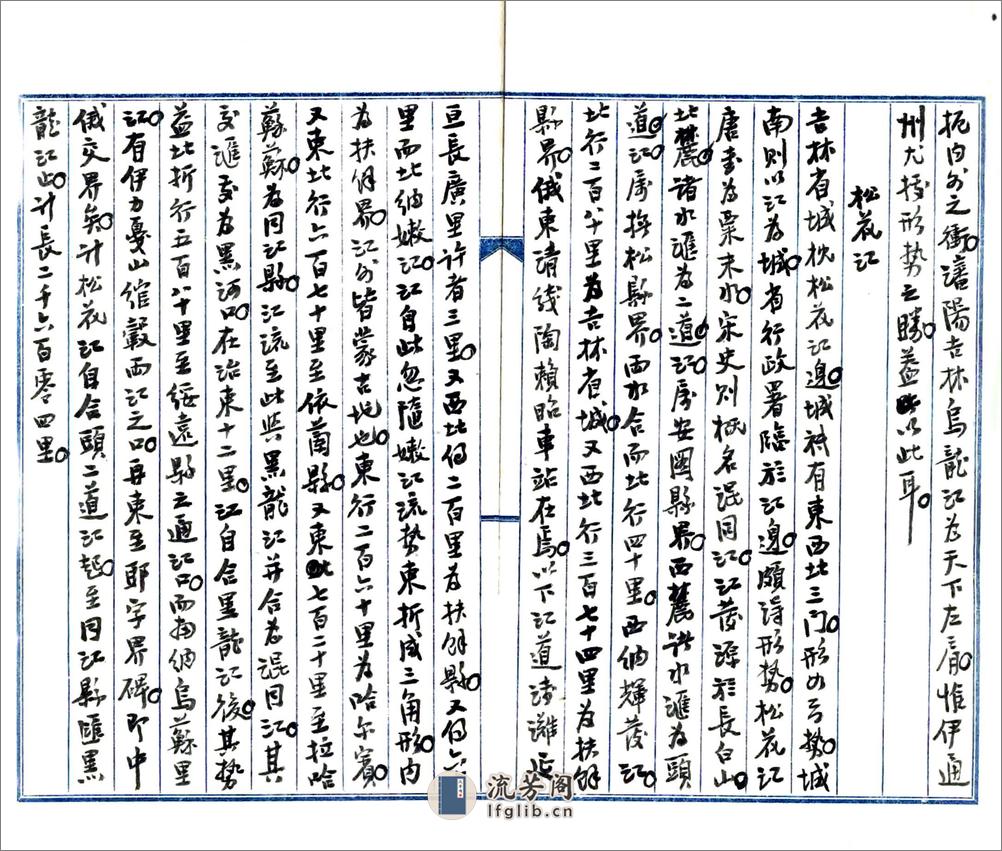 扼內外之衝。瀋陽吉林烏龍江為天下左肩。惟伊通
州尤據形勢之勝。蓋以此耳。
松花江
吉林省城枕松花江邊。城祇有東西北三門。形如弓勢。城
南則以江為城。省行政署臨於江邊。頗詩形勢。松花江
唐書為粟末水。宋史則概名混同江。江發源於長白山。
北麓諸水滙為二道江。屬安圖縣界。西麓諸水滙為頭
道江。屬撫松縣界。兩水合而北行四十里。西納輝發江。
北行二百八十里為吉林省城。又西北行三百七十四里為扶餘
縣界。俄東清綫陶賴昭車站在焉。以下江道淺灘延
亘長廣里許者三里。又西北行二百里為扶餘縣。又行六
里而北納嫩江。江自此忽隨嫩江流勢東折成三角形。內
為扶餘界。江外皆蒙古地也。東行二百六十里為哈尔賓。
又東北行六百七十里至依蘭縣。又東北七百二十里至拉哈
蘇蘇。為同江縣。江流至此與黑龍江并合為混同江。其
交滙處為黑河口。在治東十二里。江自合黑龍江後。其勢
益北折行五百八十里至綏遠縣之通江口。而南納烏蘇里
江。有伊力戛山綰轂兩江之口。再東至耶字界碑。即中
俄交界矣。計松花江自合頭二道江起。至同江縣匯黑
龍江止。計長二千六百零四里。
流芳阁
lfglib.cn